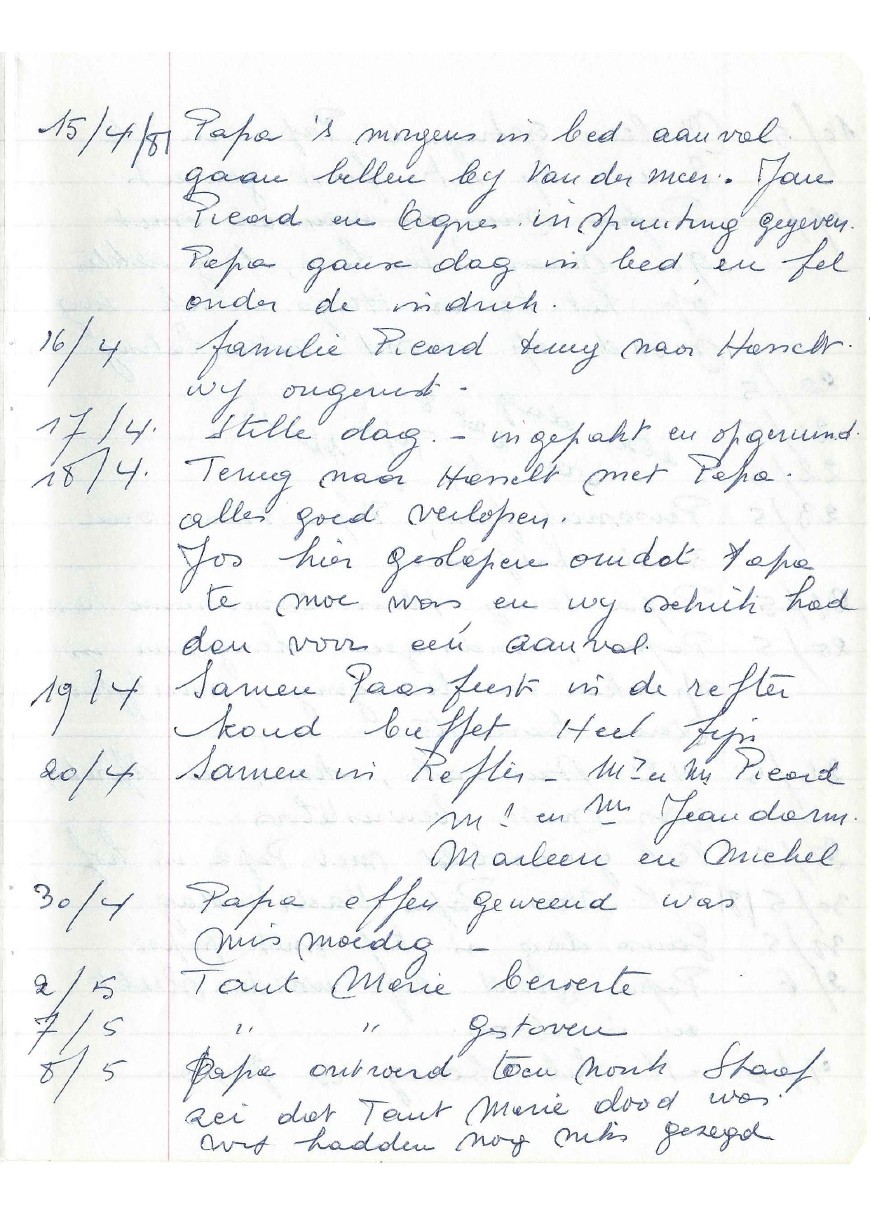 15/4/81 Papa 's morgens in bed aanval.
gaan bellen by Van der meer. Jan
Picard en Agnes. inspuiting gegeven.
Papa ganse dag in bed en fel
onder de indruk.
16/4 familie Picard terug naar Hasselt.
wy ongerust -
17/4. Stille dag. - ingepakt en opgeruimd.
18/4. Terug naar Hasselt met Papa.
alles goed verlopen.
Jos hier geslapen omdat Papa
te moe was en wy schrik had
den voor een aanval.
19/4 Samen Paasfeest in de refter
koud buffet Heel fyn
20/4 Samen in Refter - Mr en Mr Picard
Mr en Mr
Marleen en Michel
30/4 Papa effen geweend was
mismoedig -
2/5 Tant Marie beroerte
7/5 " " gestorven
8/5 Papa ontroerd toen nonk Staaf
zei dat Tant Marie dood was.
wy hadden nog niks gezegd